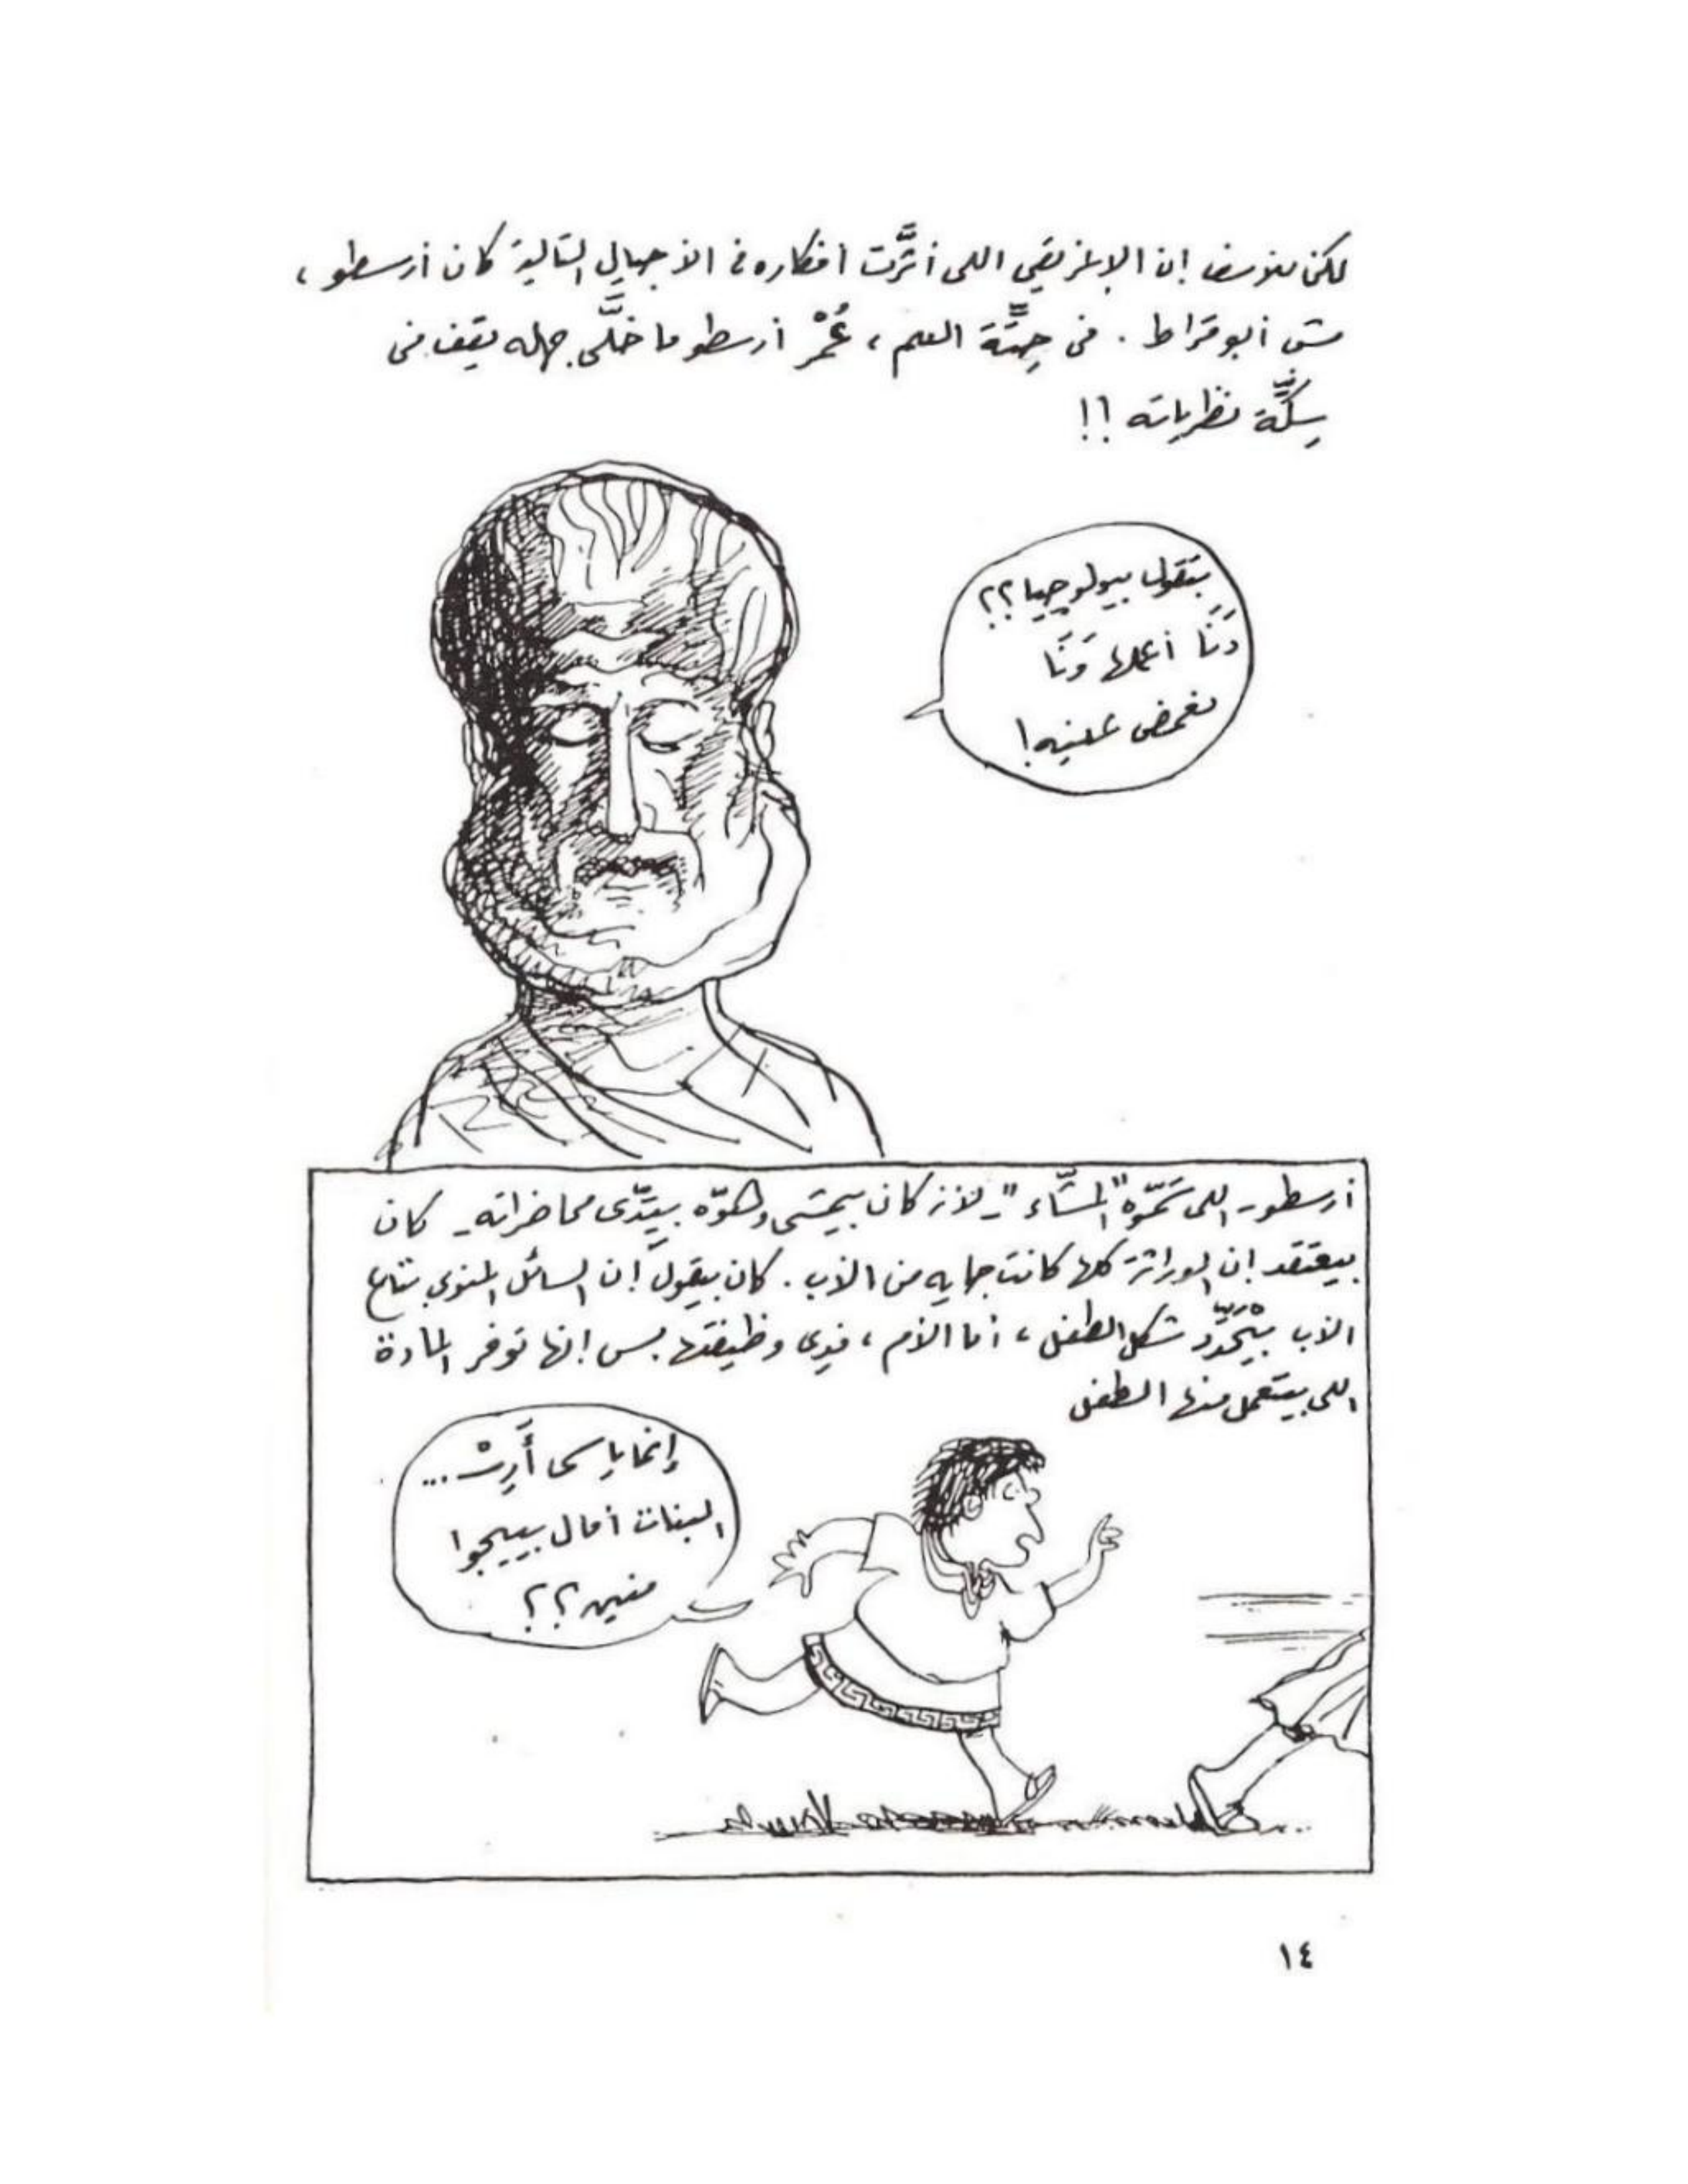 لكن للأسف إن الإغريقي اللى أثَّرت أفكاره فى الأجيال التالية كان أرسطو،
مش أبوقراط . فى حِتَّة العلم ، عُمْر أرسطو ما خلَّى جهله يقف فى
سِكَّة نظرياته !!
بتقول بيولوجيا؟؟
دَنَا أعملها وَنَا
مغمض عينيه!
أرسطو - اللى سَمّوه "المشَّاء" - لأنه كان بيمشى وهوّه بيدّى محاضراته - كان
بيعتقد إن الوراثة كلها كانت جايه من الأب . كان بيقول إن السائل المنوى بتاع
الأب بيحدّد شكل الطفل ، أما الأم ، فدى وظيفتها بس إنها توفر المادة
اللى بيتعمل منها الطفل
إنما ياسى أَرِسْ ...
البنات أمال بييجوا
منين؟؟
١٤